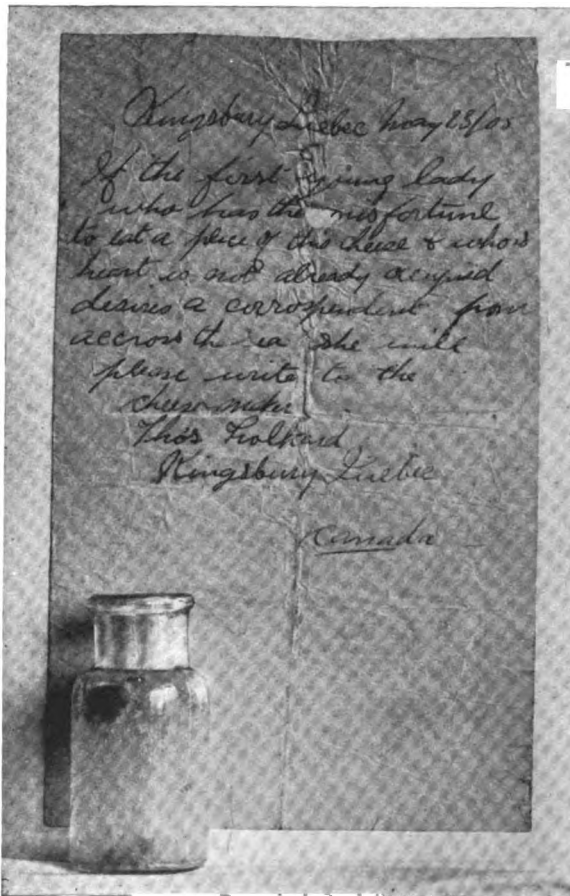 Kingsbury Quebec May 28/05
If the first young lady
who has the misfortune
to eat a piece of this cheese & who's
heart is not already occupied
desires a corrospondent from
accross the sea she will
please write to the
cheese maker
Tho's
Kingsbury Quebec
Canada